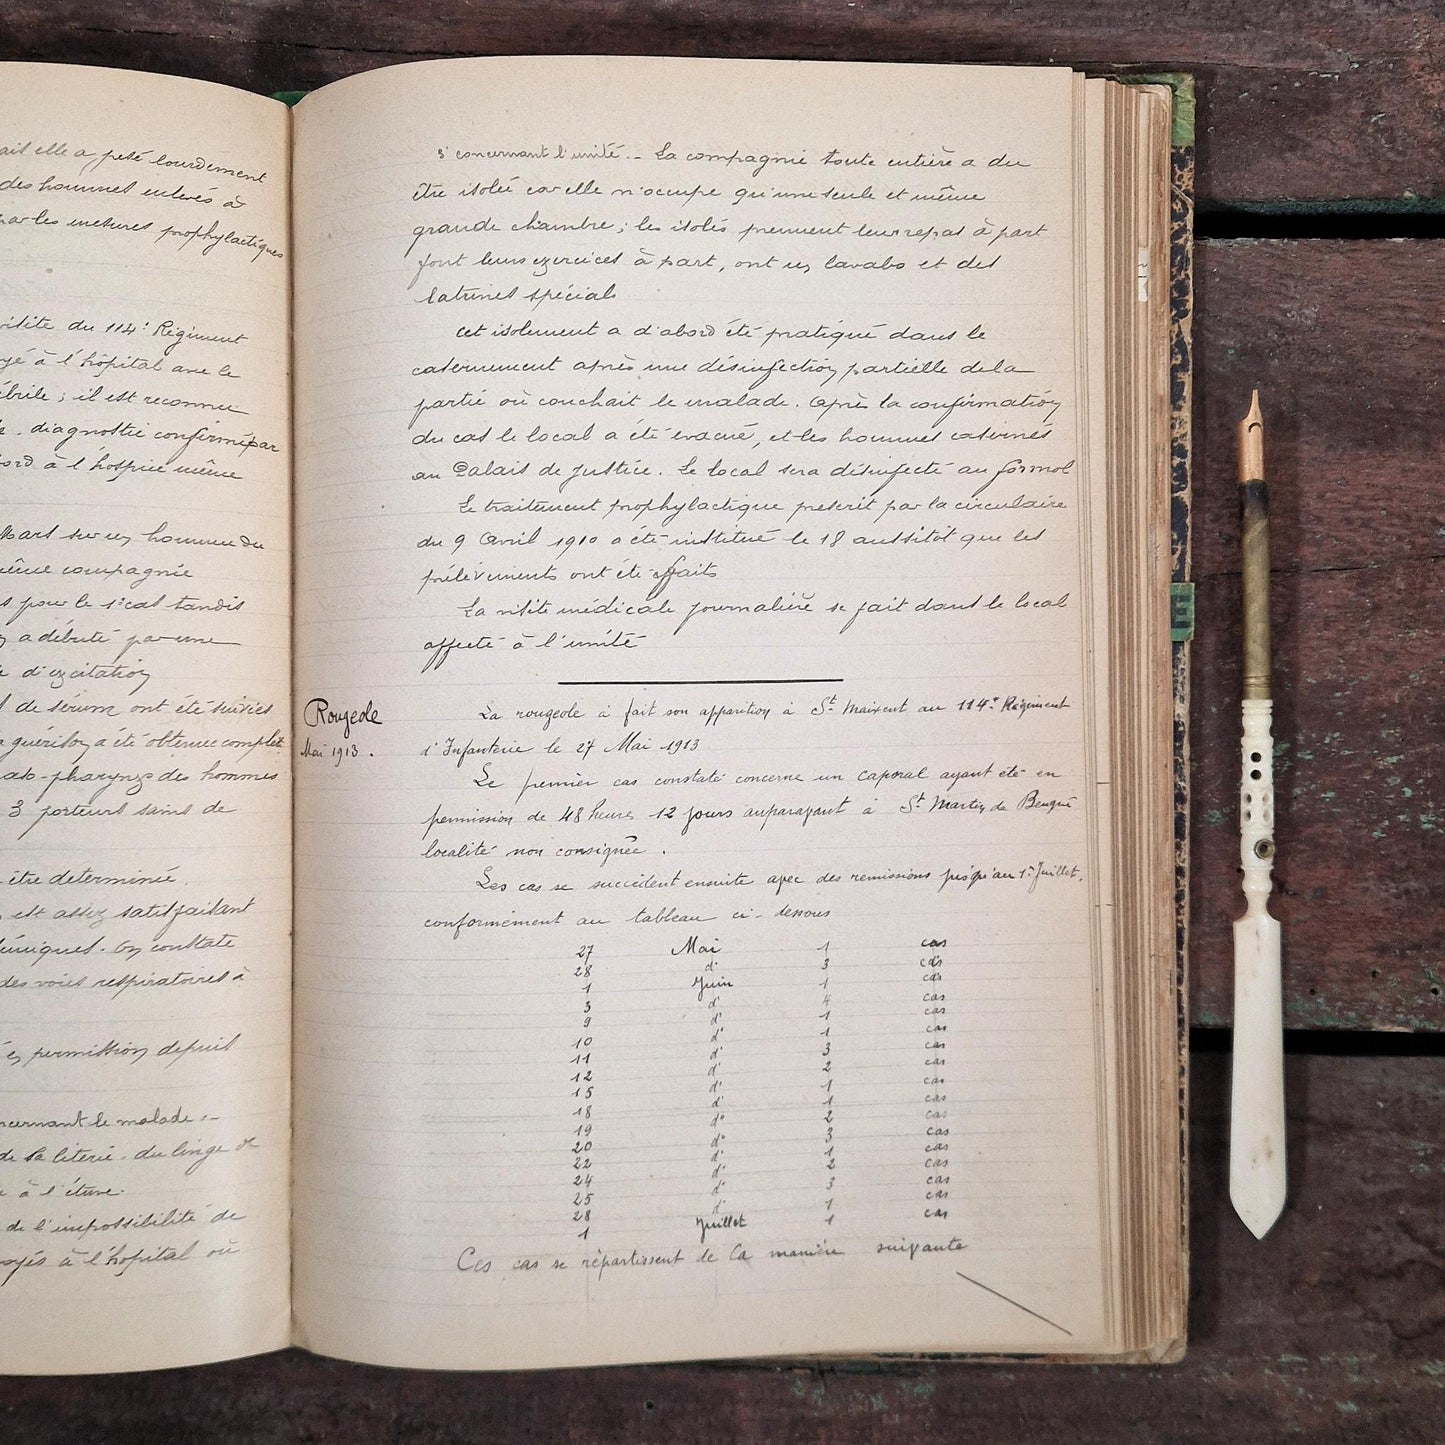 ait elle a pesé lourdement
des hommes enlevés à
par les mesures prophylactiques
visite du 114e Régiment
yé à l'hôpital avec le
ébrile ; il est reconnu
diagnostic confirmé par
ord à l'hospice même
Mars sur un homme du
même compagnie
s pour le 1er cas tandis
a débuté par une
d'excitation
de sérum ont été suivies
a guérison a été obtenue complet
ab-pharynx des hommes
3 porteurs sains de
être determinée.
est assez satisfaisant
On constate
des voies respiratoires à
en permission depuis
ncernant le malade :-
de la literie, du linge
à l'étuve.
de l'impossibilité de
oyés à l'hopital où
3° concernant l'unité.- La compagnie toute entière a du
être isolée car elle n'occupe qu'une seule et même
grande chambre ; les isolés prennent leur repas à part
font leurs exercices à part, ont un lavabo et des
latrines spéciales
cet isolement a d'abord été pratiqué dans le
casernement après une désinfection partielle de la
partie où couchait le malade. Après la confirmation
du cas le local a été évacué, et les hommes casernés
au Palais de Justice. Le local sera désinfecté au formol
Le traitement prophylactique prescrit par la circulaire
du 9 Avril 1910 a été institué le 18 aussitôt que les
prélèvements ont été faits
La visite médicale journalière se fait dans le local
affecté à l'unité
Rougeole
Mai 1913.
La rougeole à fait son apparition à St Maixent au 114e Régiment
d'Infanterie le 27 Mai 1913
Le premier cas constaté concerne un caporal ayant été en
permission de 48 heures 12 jours auparavant à St Martin de
localité non consignée.
Les cas se succèdent ensuite avec des remissions jusqu'au 1er Juillet,
conformément au tableau ci-dessous
27 Mai 1 cas
28 d° 3 cas
1 Juin 1 cas
3 d° 4 cas
9 d° 1 cas
10 d° 1 cas
11 d° 3 cas
12 d° 2 cas
15 d° 1 cas
18 d° 1 cas
19 d° 2 cas
20 d° 3 cas
22 d° 1 cas
24 d° 2 cas
25 d° 3 cas
28 d° 1 cas
1 Juillet 1 cas
Ces cas se répartissent de la manière suivante